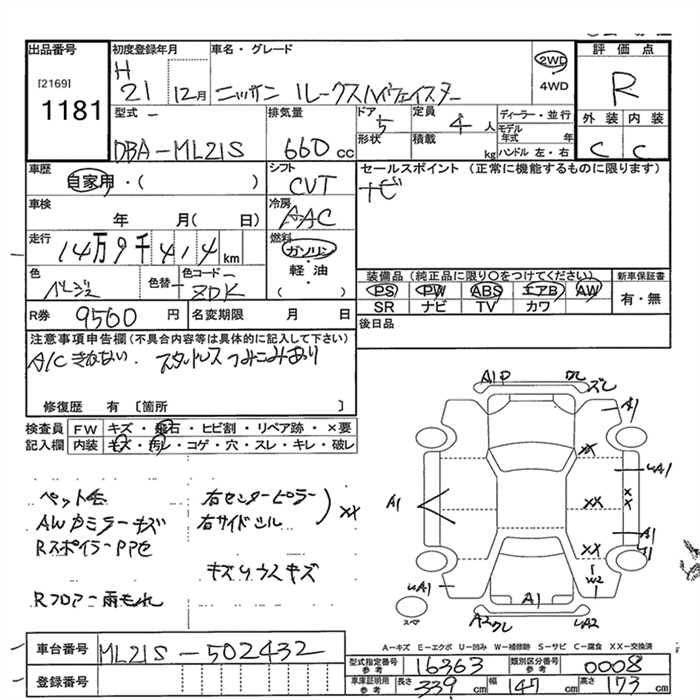 出品番号 初度登録年月 車名・グレード 評価点
[2169]
1181
H
21 12月 ニッサン ルークスハイウェイスター
2WD
4WD
R
型式 排気量 ドア 定員 ディーラー・並行
DBA-ML21S 660cc 5 4人
形状 積載 kg
モデル年式 年
ハンドル 左・右
外装 内装
C C
車歴 シフト セールスポイント（正常に機能するものに限ります）
自家用・( ) CVT ナビ
車検 冷房
年 月( 日) AAC
走行 燃料
14万9千414km ガソリン・軽油・( )
色 色替 色コード
ベージュ
装備品（純正品に限り○をつけてください） 新車保証書
PS PW ABS エアB AW 有・無
SR ナビ TV カワ
R券 9560円 名変期限 月 日 後日品
注意事項申告欄(不具合内容等は具体的に記入して下さい)
A/Cきかない スタットレスつみこみあり
修復歴 有 [箇所 ]
検査員 FW キズ・飛石・ヒビ割・リペア跡・×要
記入欄 内装 キズ・汚レ・コゲ・穴・スレ・キレ・破レ
A1P ズレ
A1
XX
A1
XX
XX
A1
W2
A1
A1
A2 クレ
A2
スペア
右センターピラー
AWカミラーキズ 右サイドシル XX
Rフロアー雨もれ
A-キズ E-エクボ U-凹み W-補修跡 S-サビ C-腐食 XX-交換済
車台番号 ML21S-502432
登録番号
型式指定番号 参考 16363 類別区分番号 参考 0008
車庫証明用 参考 長さ 339cm 幅 147cm 高さ 173cm